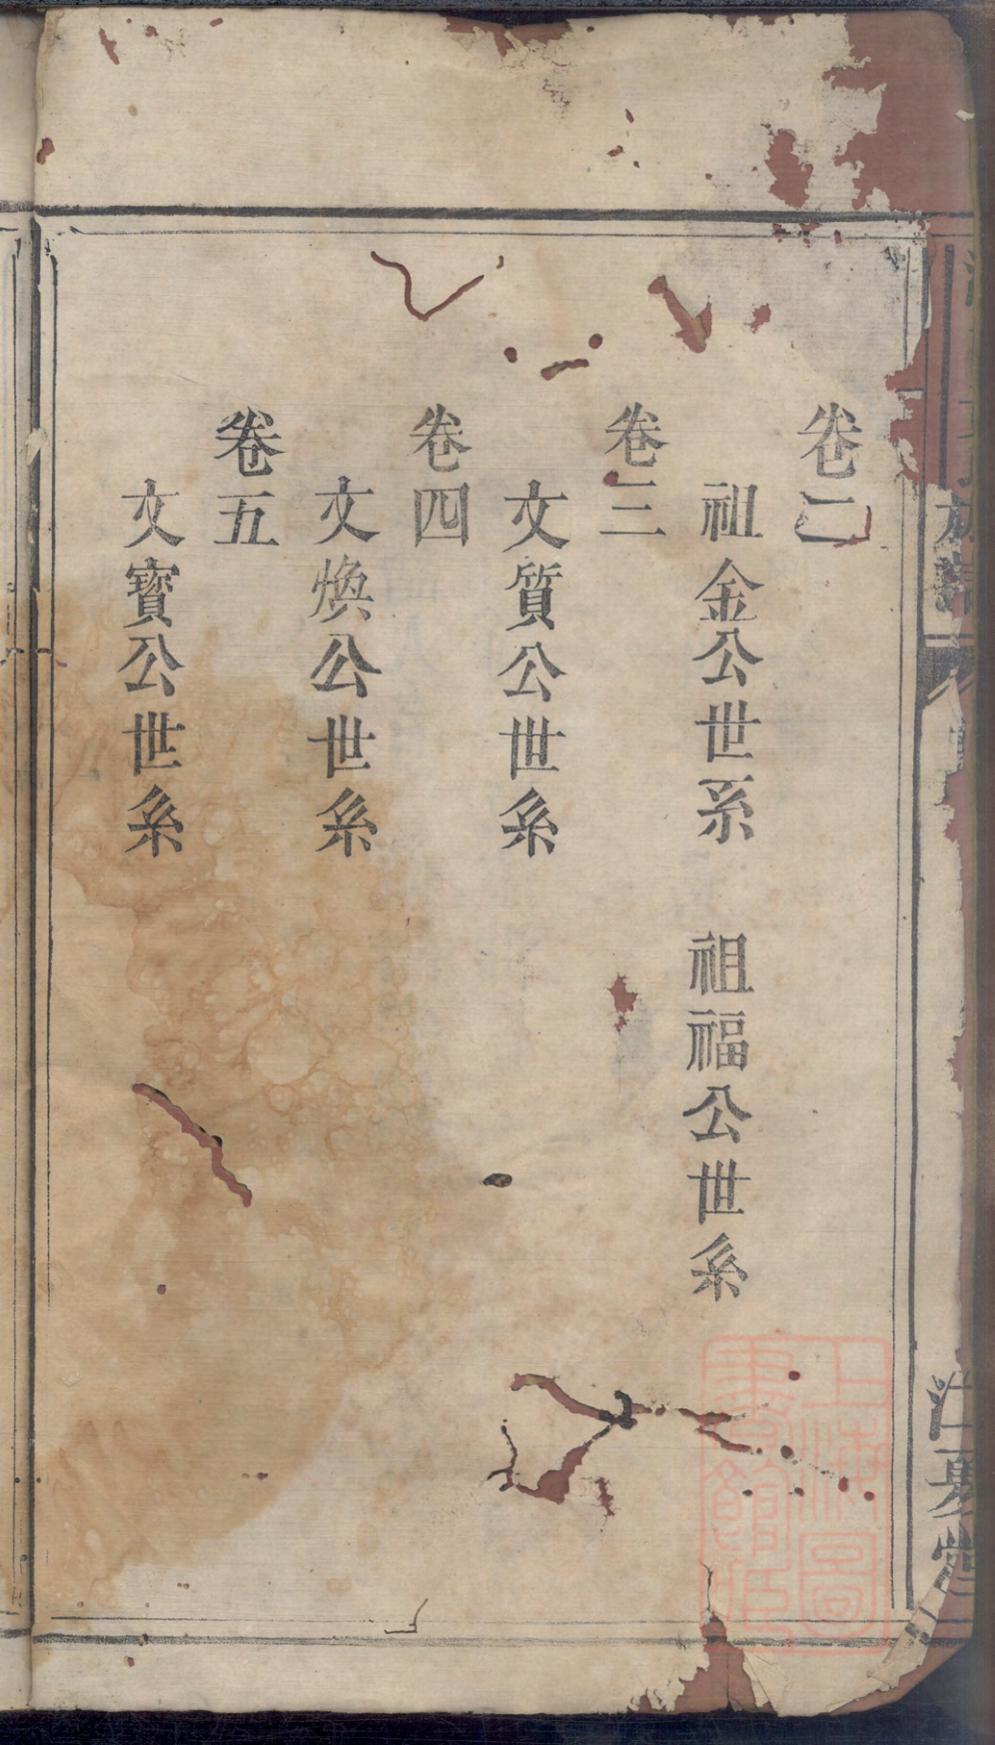 卷二
祖金公世系　祖福公世系
卷三
文質公世系
卷四
文煥公世系
卷五
文寶公世系
族譜
江夏堂
上海圖書館藏